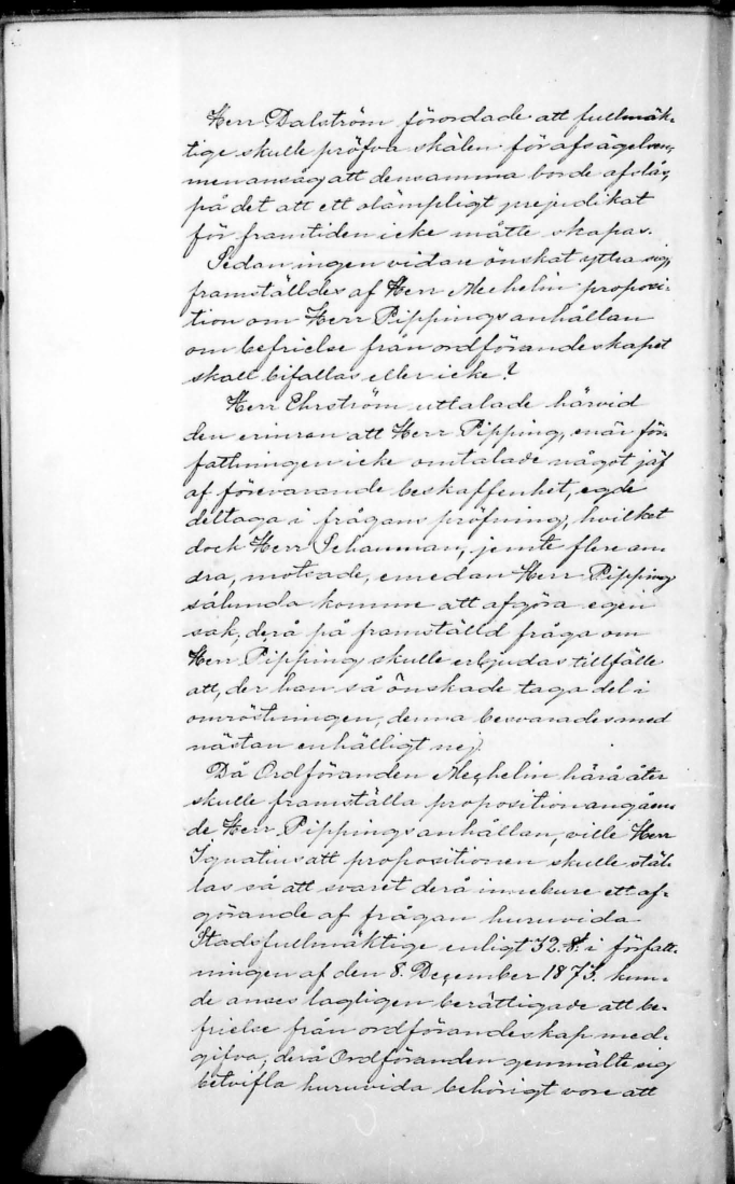 Herr Dalström förordade att fullmäk-
tige skulle pröfva skälen för afsägelsen,
men ansåg att densamma borde afslås,
på det att ett olämpligt prejudikat
för framtiden icke måtte skapas.
Sedan ingen vidare önskat yttra sig,
framställdes af Herr Mechelin proposi-
tion om Herr Pippings anhållan
om befrielse från ordförandeskapet
skall bifallas eller icke?
Herr Ehrström uttalade härvid
den erinran att Herr Pipping, enär för-
fattningen icke omtalade något jäf
af förevarande beskaffenhet, egde
deltaga i frågans pröfning, hvilket
dock Herr Schauman, jemte flere an-
dra, motsade, emedan Herr Pipping
sålunda komme att afgöra egen
sak; derå på framställd fråga om
Herr Pipping skulle erbjudas tillfälle
att, der han så önskade taga del i
omröstningen, denna besvarades med
nästan enhälligt nej.
Då Ordföranden Mechelin härå åter
skulle framställa proposition angåen-
de Herr Pippings anhållan, ville Herr
Ignatius att propositionen skulle stäl-
las så att svaret derå innebure ett af-
görande af frågan huruvida
Stadsfullmäktige enligt 32 §. i författ-
ningen af den 8. December 1873. kun-
de anses lagligen berättigade att be-
frielse från ordförandeskap med-
gifva; derå Ordföranden genmälte sig
betvifla huruvida behörigt vore att